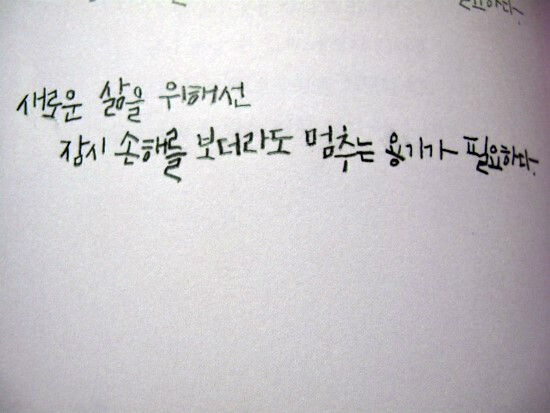 필요하다.
새로운 삶을 위해선
잠시 손해를 보더라도 멈추는 용기가 필요하다.